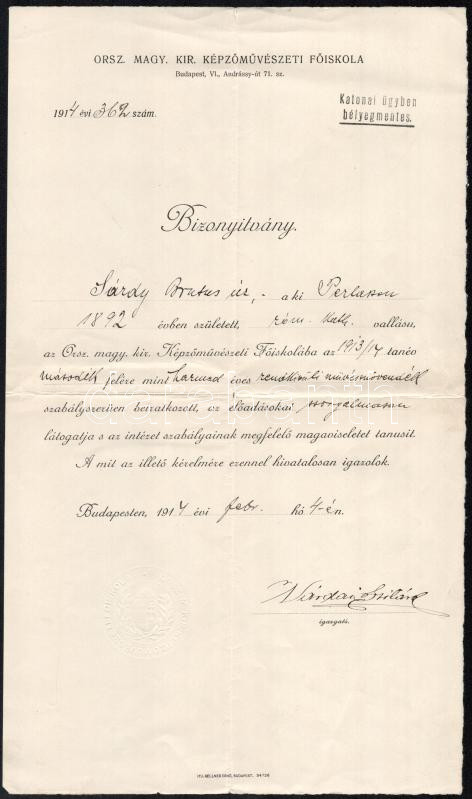 ORSZ. MAGY. KIR. KÉPZŐMŰVÉSZETI FŐISKOLA
Budapest, VI., Andrássy-út 71. sz.
1914 évi 362 szám.
Katonai ügyben
bélyegmentes.
Bizonyitvány.
Sárdy Brutus úr, - a ki Perlakon
1892 évben született, róm. kath. vallásu,
az Orsz. magy. kir. Képzőművészeti Főiskolába az 1913/14 tanév
második felére mint harmad éves rendkívüli művésznövendék
szabályszerüen beiratkozott, az előadásokat szorgalmasan
látogatja s az intézet szabályainak megfelelő magaviseletet tanusit.
A mit az illető kérelmére ezennel hivatalosan igazolok.
Budapesten, 1914 évi febr. hó 4-én.
Várdai Szilárd
igazgató.